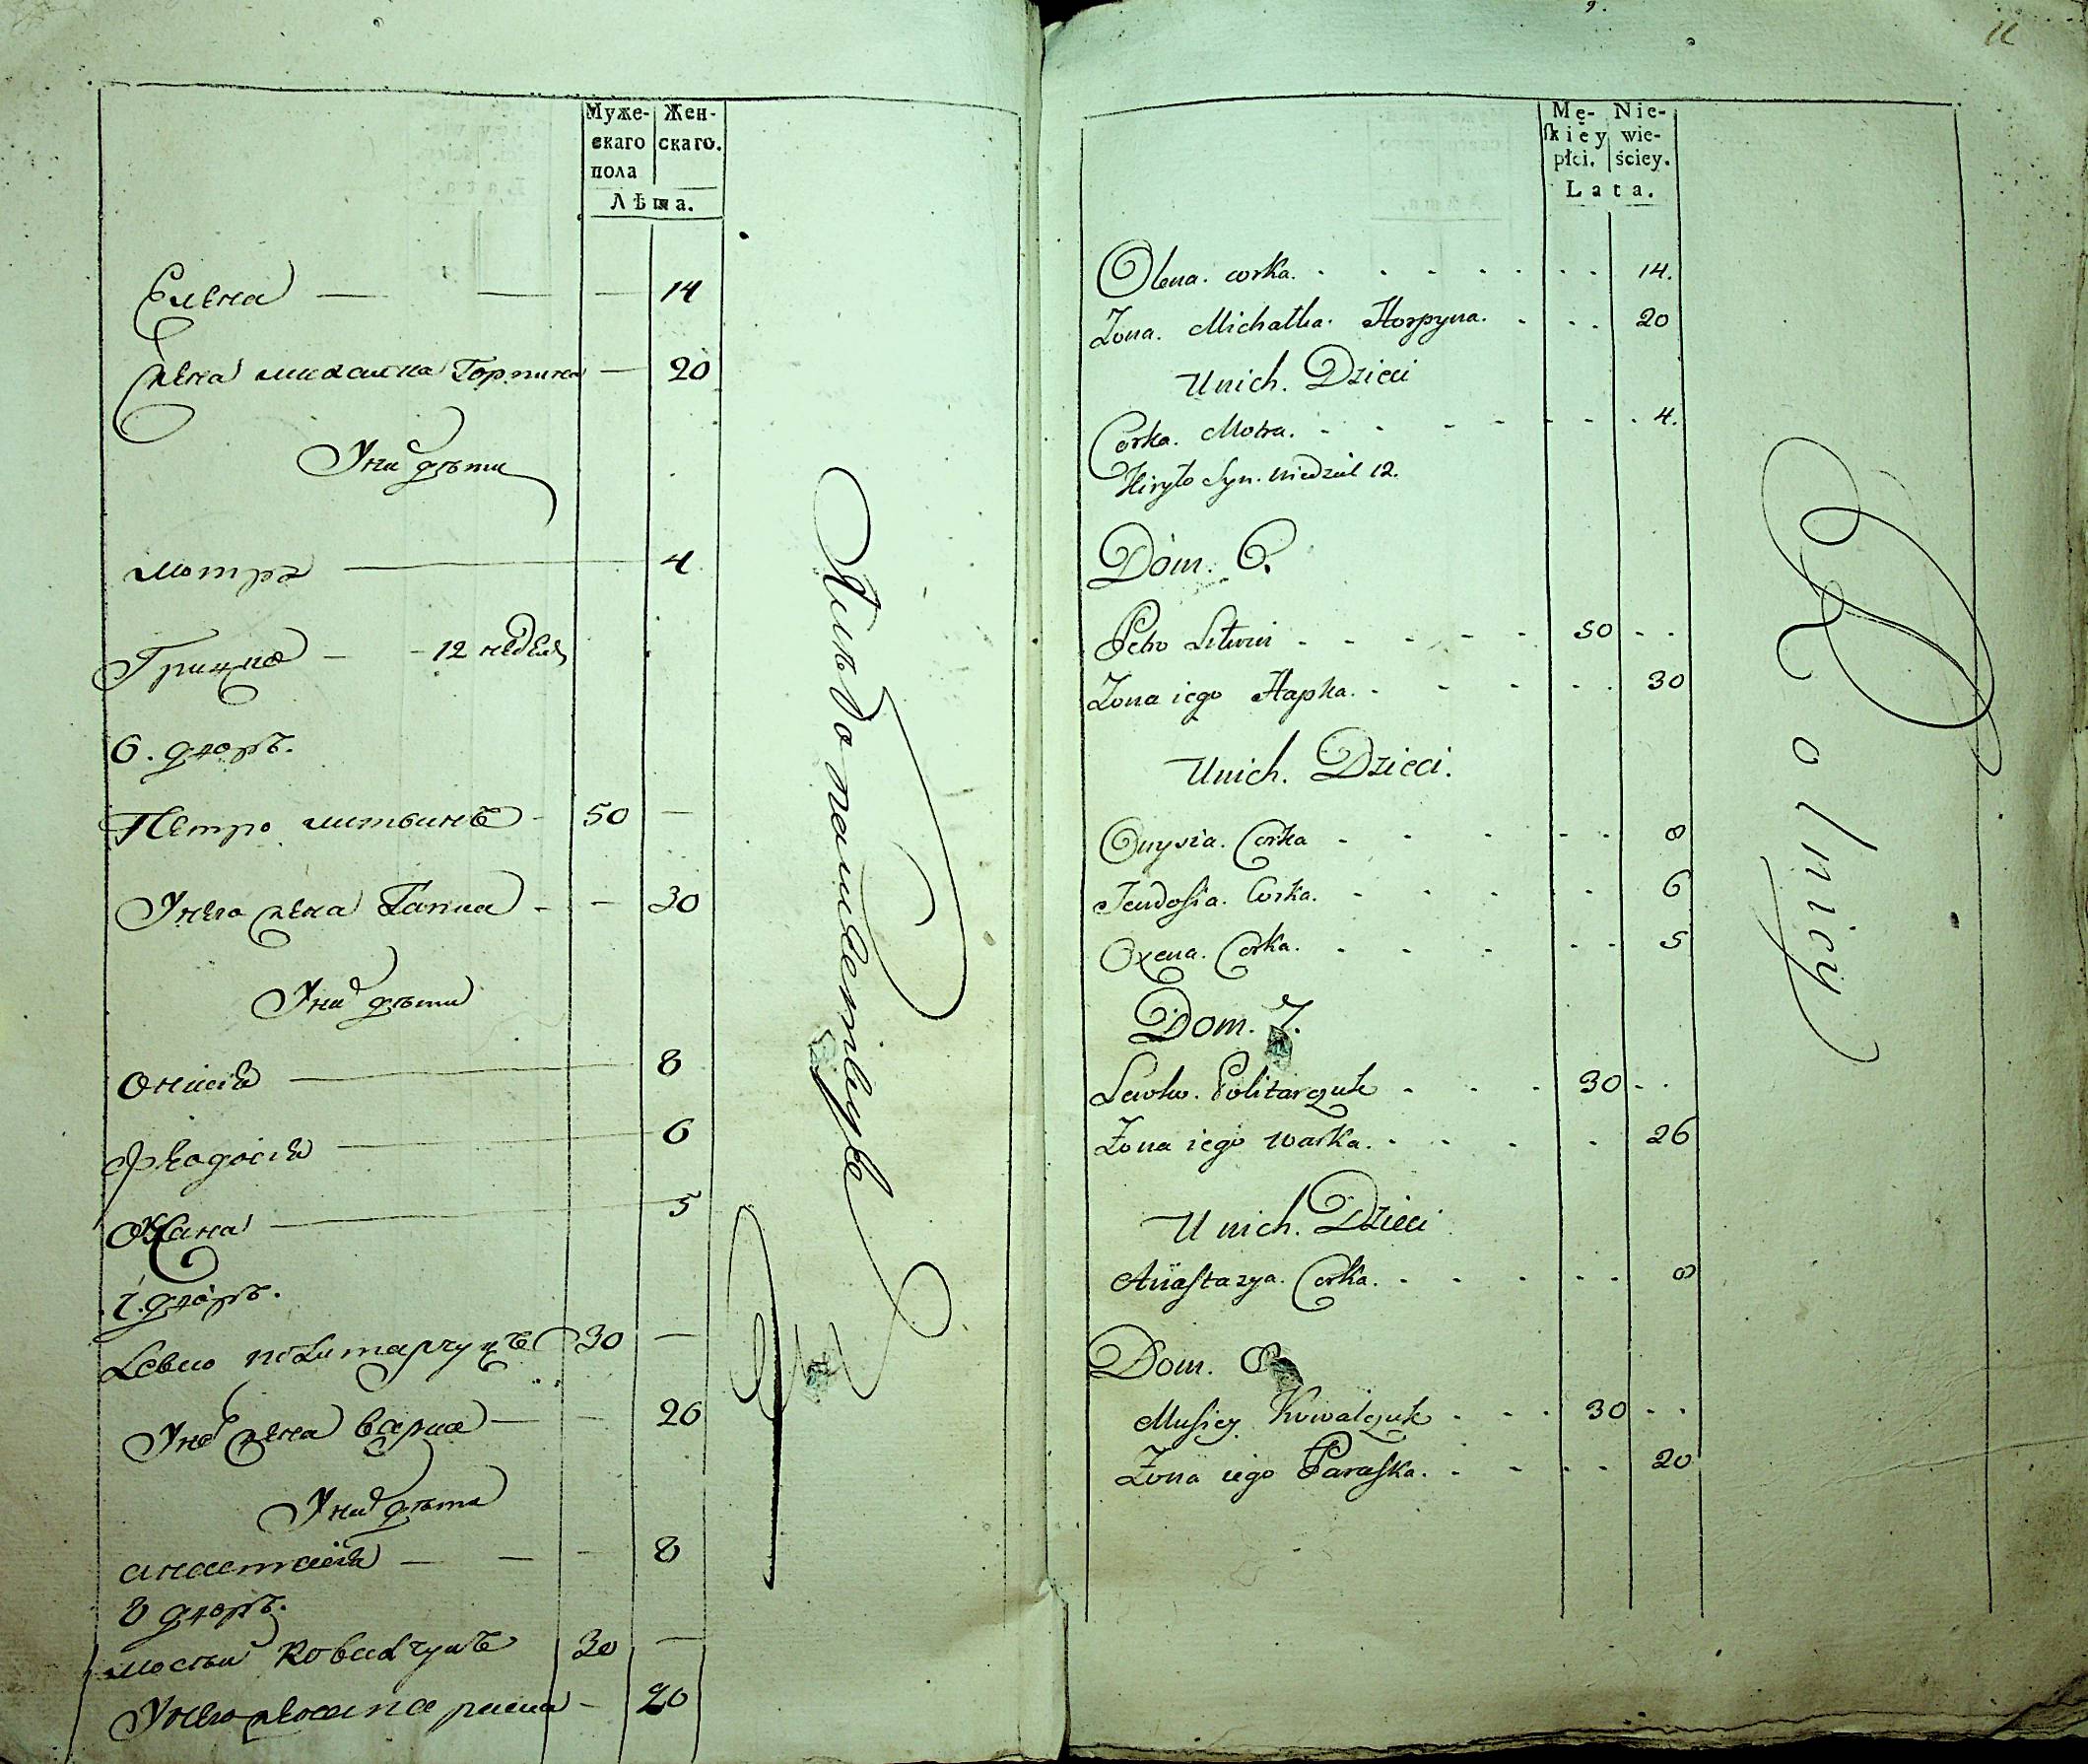 Муже-
скаго
пола
Жен-
скаго.
Лѣта.
Елена 14
Жена михалка Горпина 20
У ни дѣти
мотра 4
Грицко 12 недель
6. дворъ.
Петро литвинъ 50
У него жена Гапка 30
У ни дѣти
онисія 8
Феодосія 6
Оксана 5
7. дворъ.
Левко политарчукъ 30
У него жена варка 26
У ни дѣти
анастасія 8
8 дворъ.
мосѣй ковалчукъ 30
У него жена параска 20
Хлѣбопашествуютъ
11
Mę-
ſkiey
płci.
Nie-
wie-
ściey.
Lata.
Olena. corka. 14.
Zona. Michałka. Horpyna. 20
U nich. Dzieci
Corka. Motra. 4.
Hiryło Syn. niedziel 12.
Dom. 6.
Petro Litwin 50
Zona iego Hapka. 30
U nich. Dzieci.
Onysia. Corka 8
Feudoſia. Corka. 6
Oxena. Corka. 5
Dom. 7.
Lewko. Politarczuk 30
Zona iego warka. 26
U nich. Dzieci
Anaſtazya. Corka. 8
Dom. 8
Muſiey Kowalczuk 30
Zona iego Paraſka. 20
Rolnicy